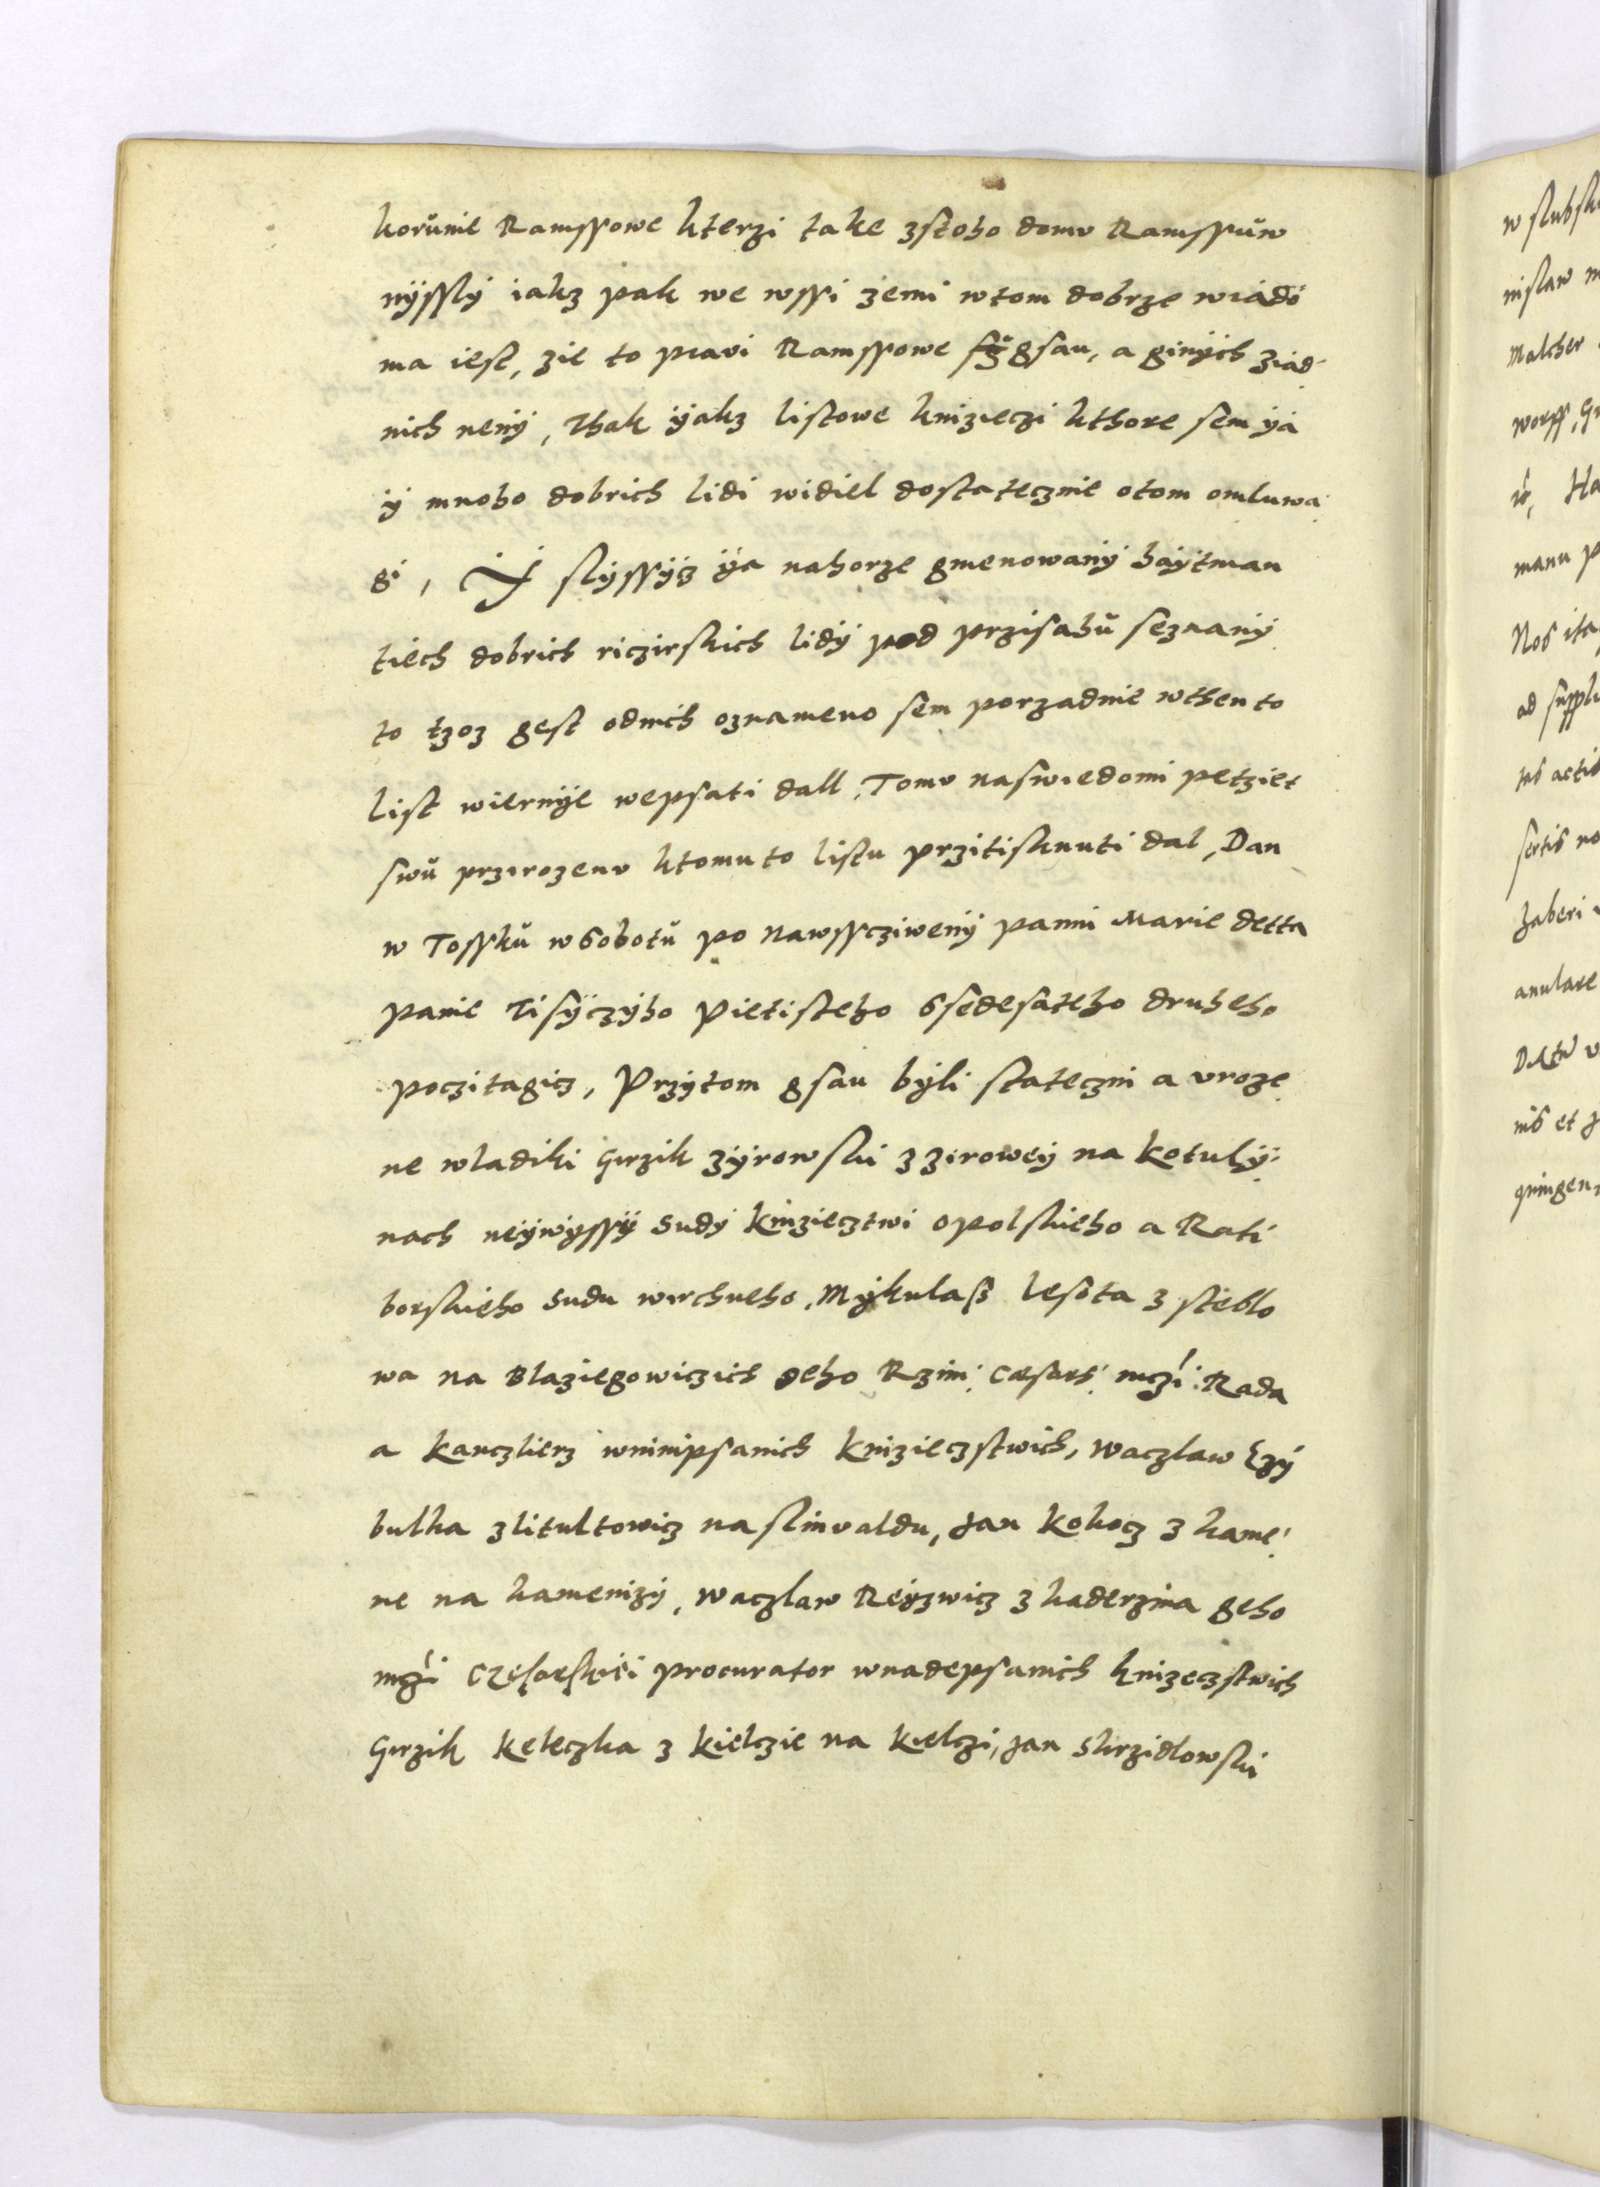 korunie Ramssowe kterzi take zstoho domu Ramssuw
nÿssly iakz pak we wssi zemi wtom dobrze wiado
ma iest, zie to prawi Ramssowe gsau, a ginÿch ziad
nich nenÿ, Thak ÿakz listowe knizieczi kthore sem ÿa
ÿ mnoho dobrich lidi widiel dostatecznie otom omluwa
gi, Y slÿssÿcz ÿa nahorze gmenowanÿ haÿtman
tiech dobrich riczirskich lidÿ pod przisahu seznanÿ
to tzoz gest odnich oznameno sem porzadnie wthento
list wiernÿe wepsati dall, Tomu naswiedomi petziet
swu przirozenu ktomuto listu przitisknuti dal, Dan
w Tossku wsobotu po nawssczivenÿ panni Marie detta
panie Tisÿczÿho Pietisteho ssedesateho druheho
pocitagicz, Przÿtom gsau bÿli stateczni a uroze
ne wladiki Girzik zÿrowski z ziroweÿ na Kotulÿ
nach neÿwÿssÿ sudÿ Kniziecztwi opolskieho a Rati
borskieho sudu wirchneho, Mÿkulass lesota z steblo
wa na Blaziegowiczich geho Rzim: Cæsars: mczi: Rada
a Kanczlierz wninipsanich Knizieczstwich, Waczlaw Czÿ
bulka zlitultowicz na slinwaldu, Jan Kokocz z kame
ne na kamenizÿ, Waczlaw Reÿzwicz z kaderzina geho
mczi Czesarskiei procurator wnadepsanich knizeczstwich
Girzik Keleczka z Kielczie na Kielczi, Jan Skrzidlowski
w slubsk
nislaw m
Malcher
worss, G
Ha
manu p
Nos ita
ad supplu
tis actis
sertis no
Zaberi
anulare
nis et J
quingen